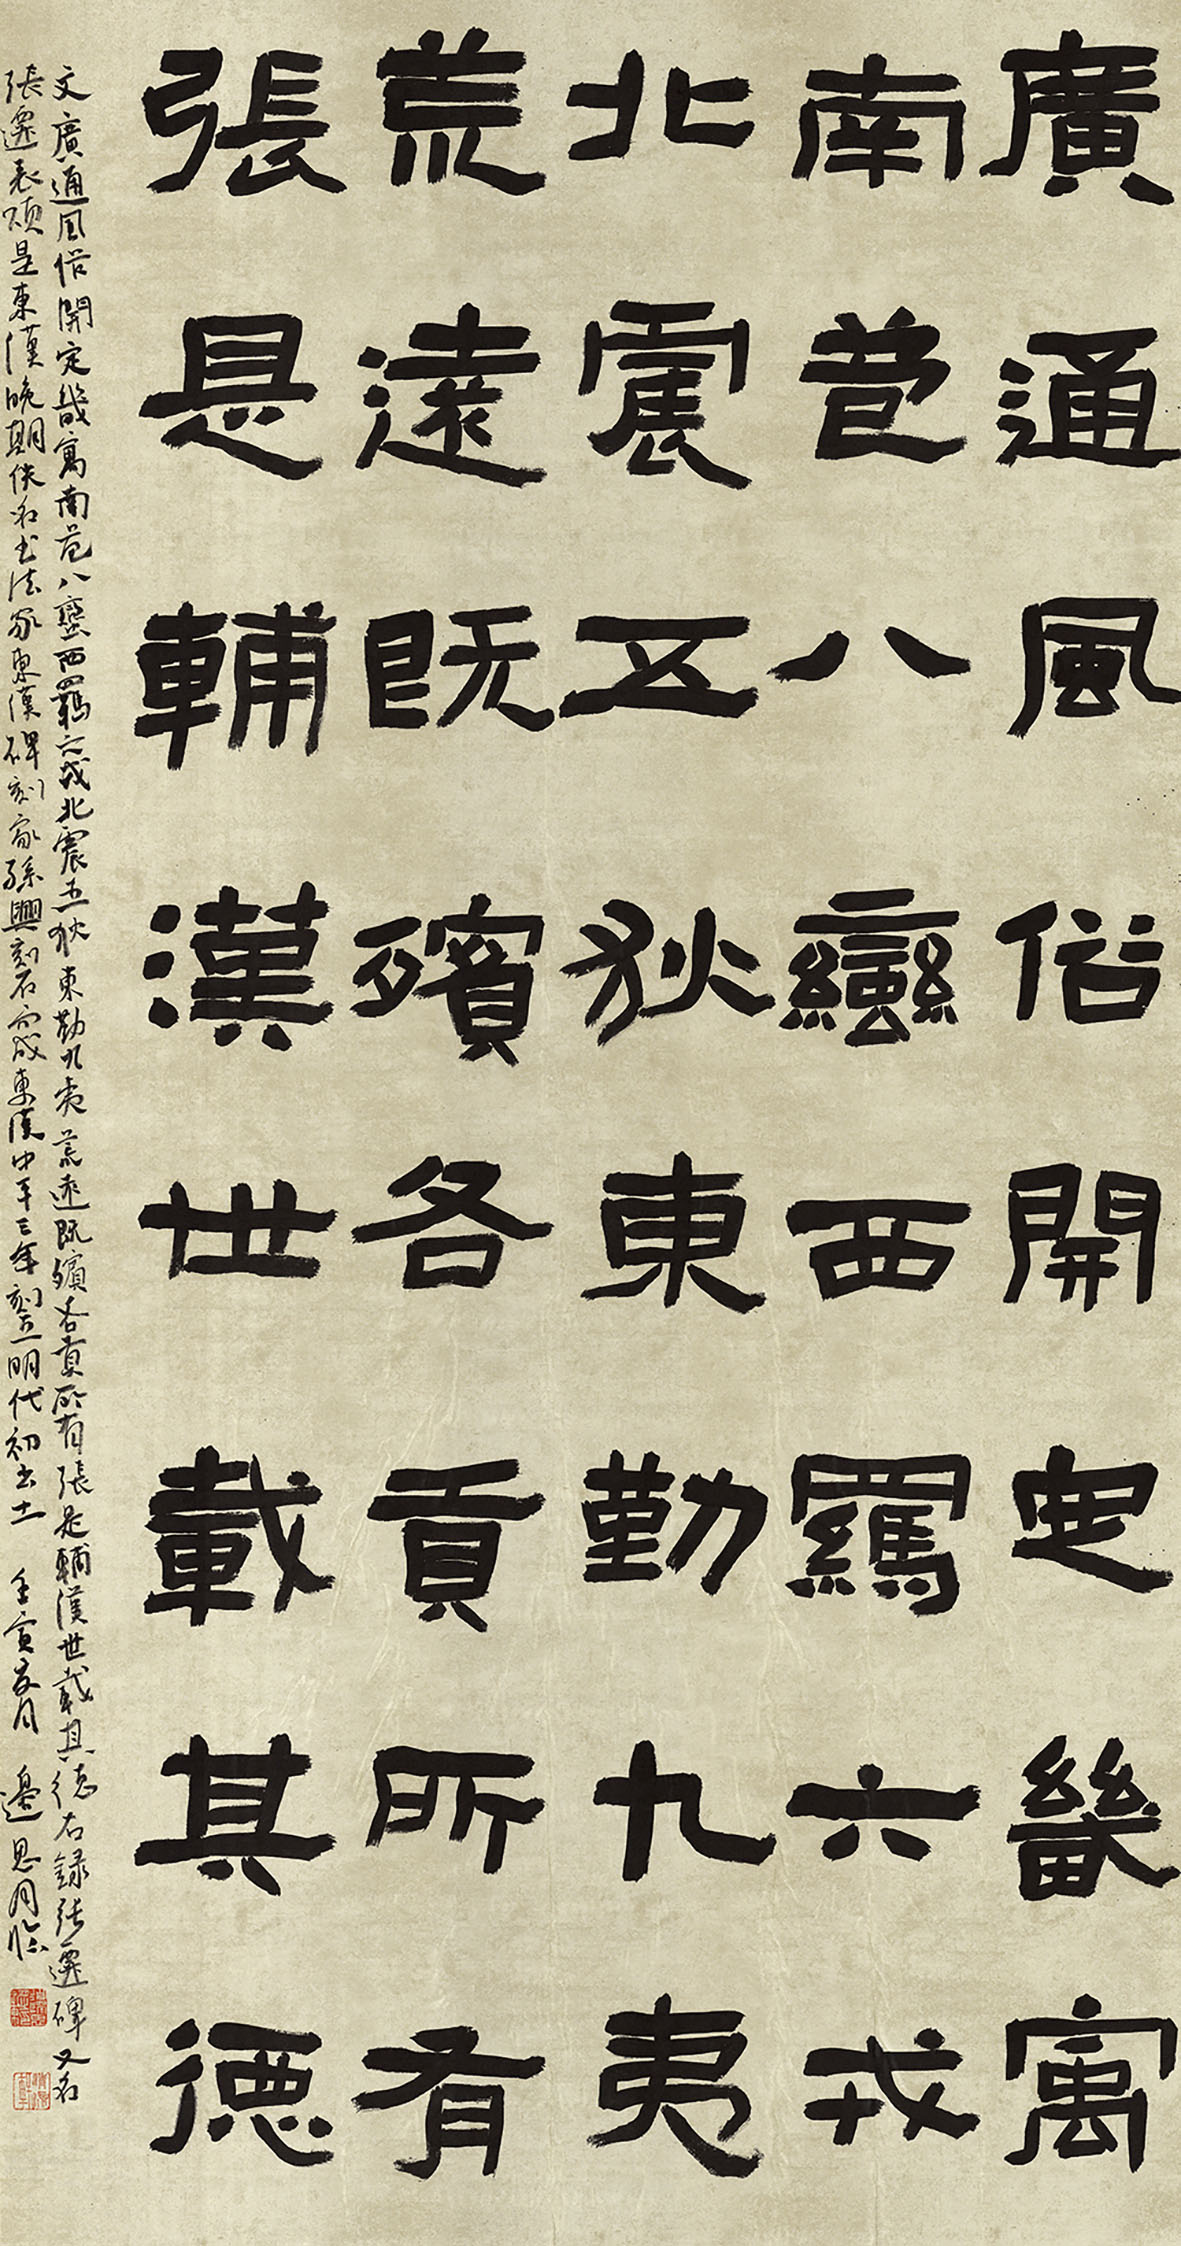 廣通風俗開定畿寓
南苞八蠻西羈六戎
北震五狄東勤九夷
荒遠既殯各貢所有
張是輔漢世載其德
文廣通風俗開定畿寓南苞八蠻西羈六戎北震五狄東勤九夷荒遠既殯各貢所有張是輔漢世載其德右録張遷碑又名
張遷表頌是東漢晚期佚名书法家東漢碑刻家孫興刻石而成東漢中平三年刻立明代初出土 壬寅 月 邊思同臨